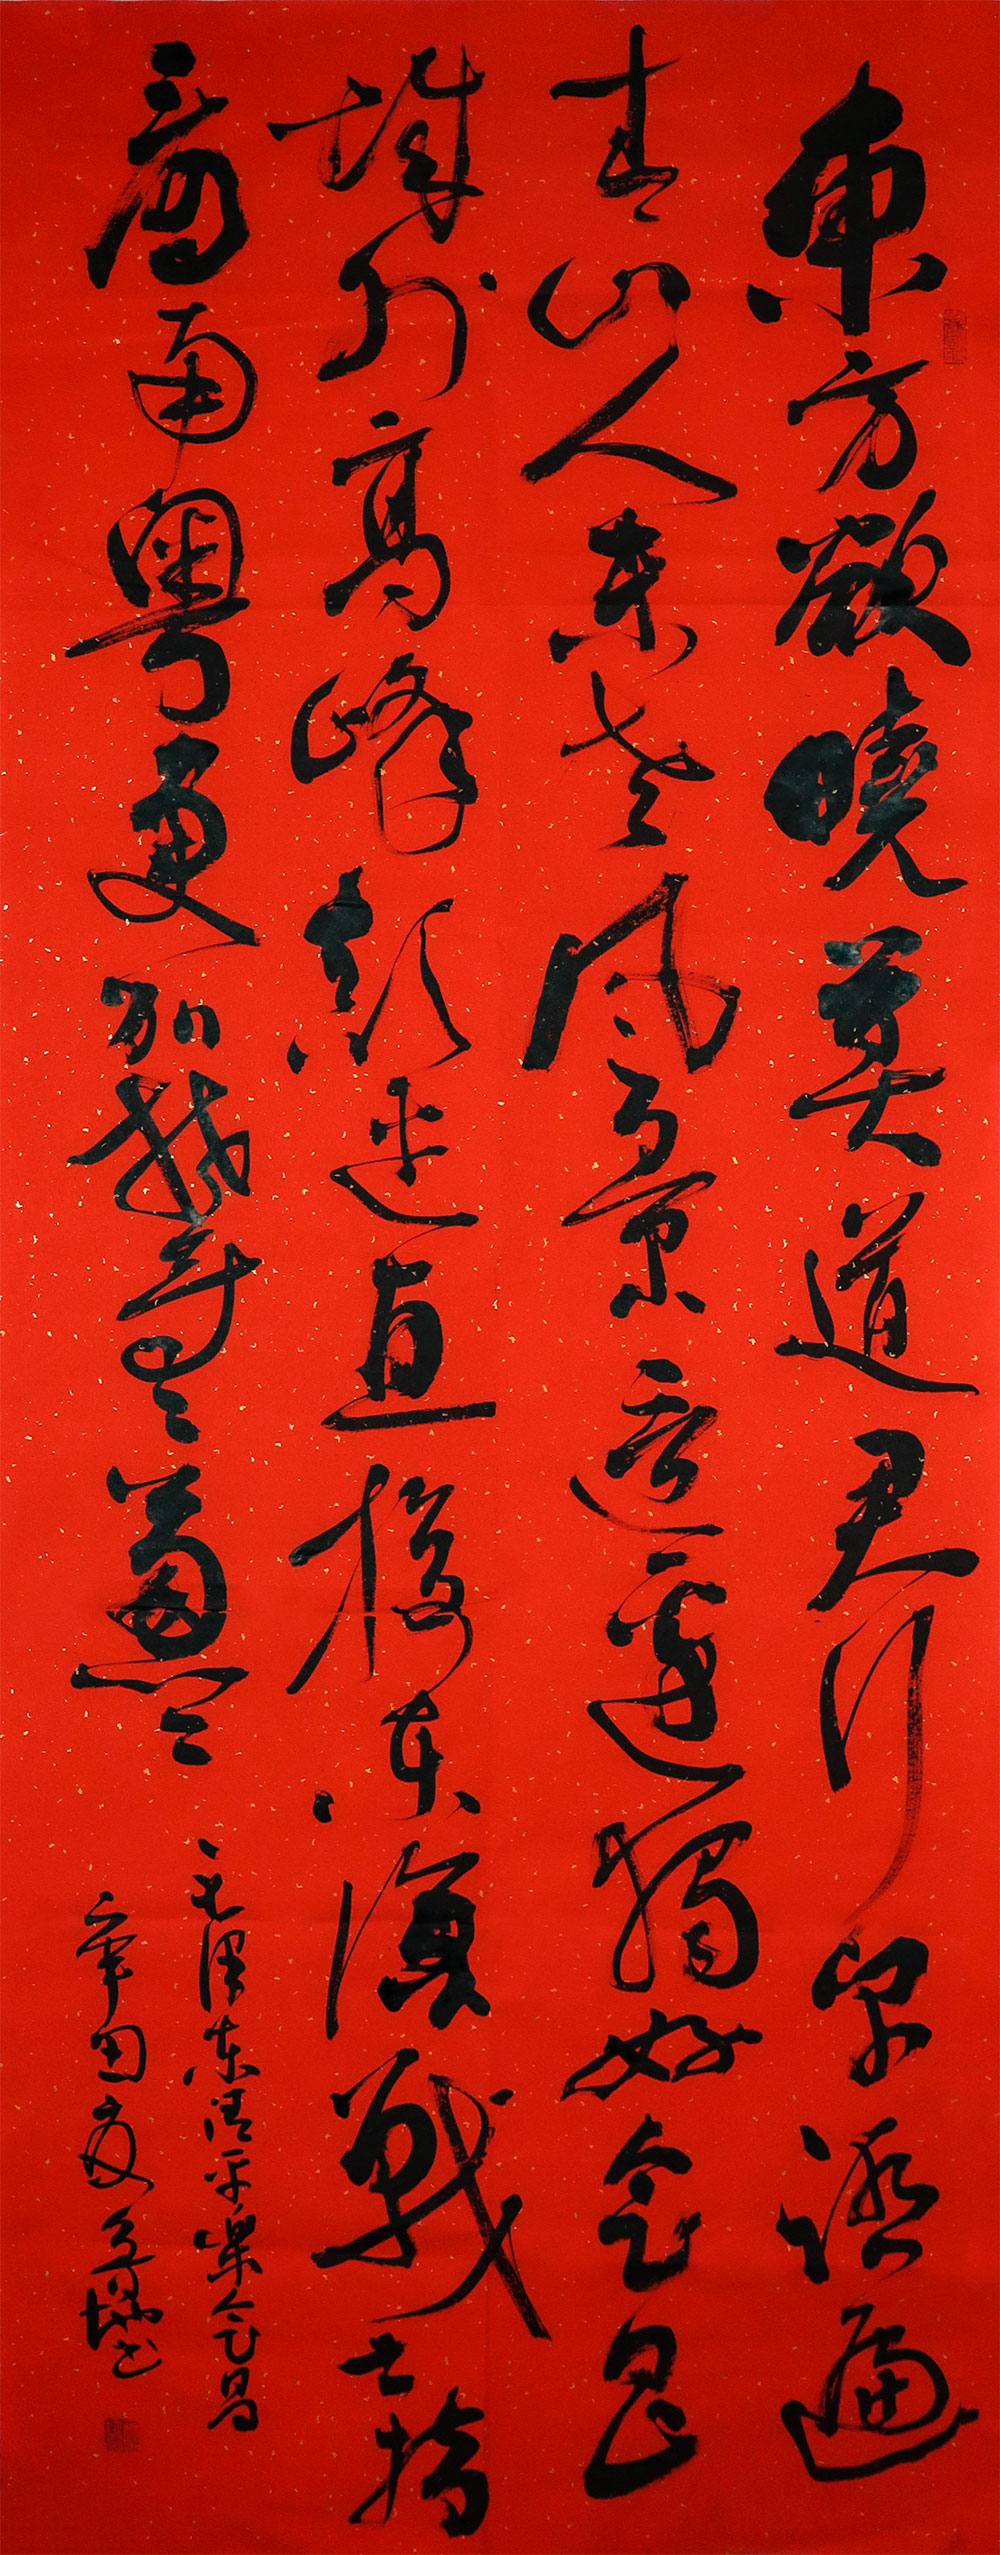 東方欲曉莫道君行早踏遍
青山人未老風景這邊獨好會昌
城外高峰顛連直接東溟戰士指
看南粤更加鬱々葱々
毛澤東清平樂會昌
辛丑夏書